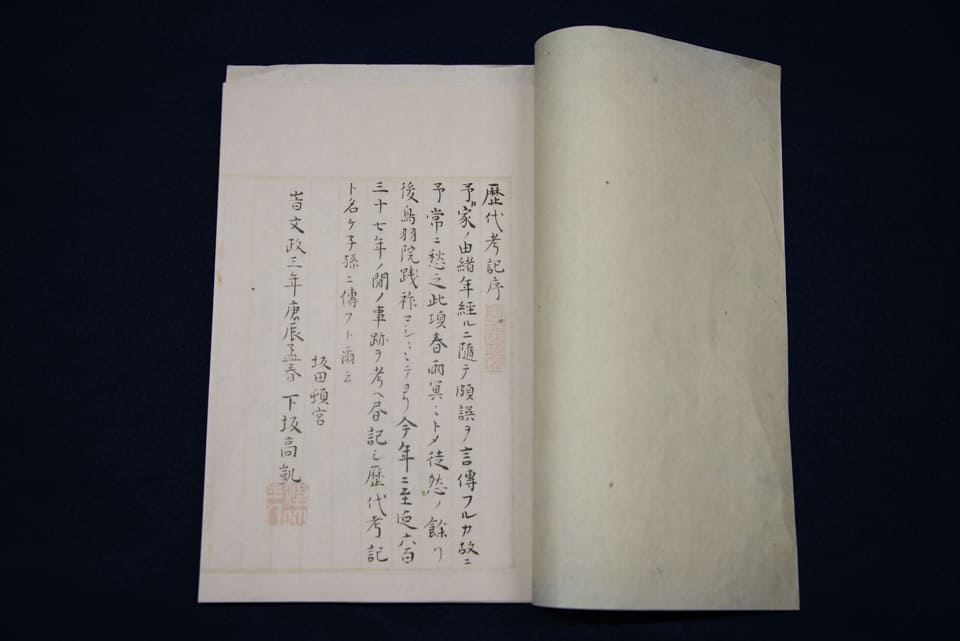 歴代考記序
予家ノ由緒年經ルニ隨テ頗誤ヲ言傳フルカ故ニ
予常ニ愁之此項春雨冥ミトメ徒然ノ餘リ
後鳥羽院践祚マシミテヨリ今年ニ至迠六百
三十七年ノ間ノ事跡ヲ考ヘ畧記シ歴代考記
ト名ケ子孫ニ傳フト爾云
坂田頓宮
旹文政三年庚辰孟春 下坂高凱